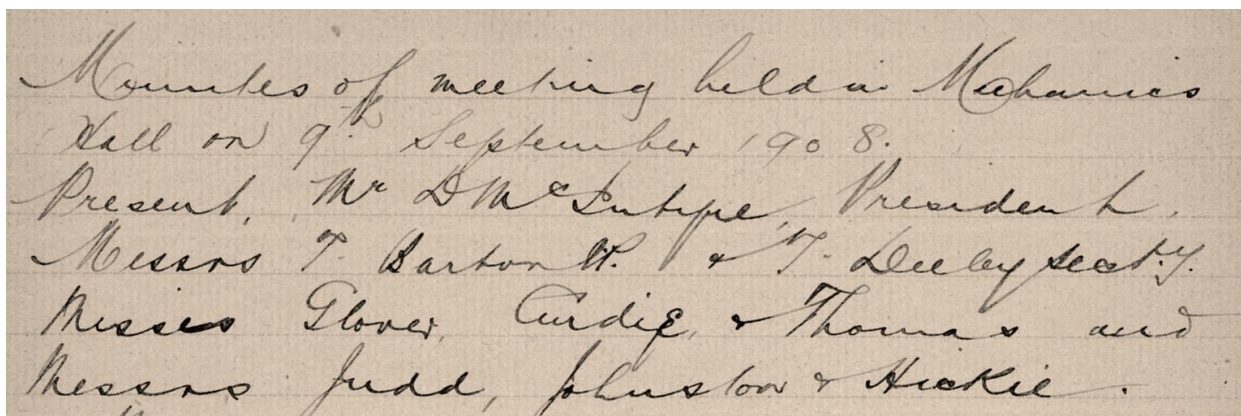 Minutes of meeting held in Mechanics
Hall on 9th September 1908.
Present, Mr D McIntyre, President.
Messrs T. Barton & T. Deeley secty.
Misses Glover, Curdie, & Thomas and
Messrs Judd, Johnston & Hickie.